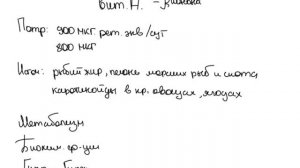 Вит. А.
Потр: 900 мкг. рет. экв/сут
800 мкг
Источ: рыбий жир, печень морских рыб и скота
каротиноиды в кр. овощах, ягодах
Метаболизм
Биохим. ф-ции